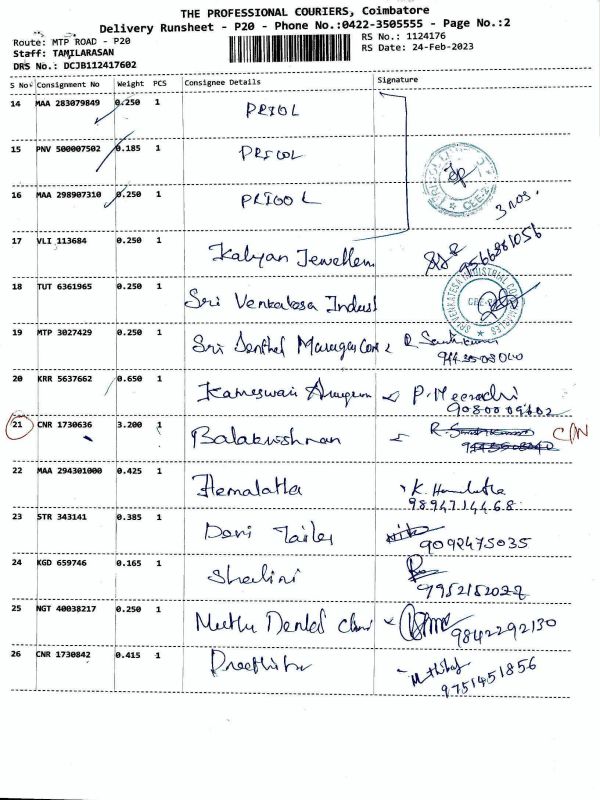 THE PROFESSIONAL COURIERS, Coimbatore
Delivery Runsheet - P20 - Phone No.:0422-3505555 - Page No.:2
Route: MTP ROAD - P20
RS No.: 1124176
Staff: TAMILARASAN
RS Date: 24-Feb-2023
DRS No.: DCJB112417602
S No Consignment No Weight PCS Consignee Details Signature
14 MAA 283079849 0.250 1 PRICOL
15 PNV 500007502 0.185 1 PRICOL
16 MAA 298907310 0.250 1 PRICOL
3 nos.
17 VLI 113684 0.250 1 Kalyan Jewellers 9566881056
18 TUT 6361965 0.250 1 Sri Venkatesa Indust
19 MTP 3027429 0.250 1 Sri Senthel
20 KRR 5637662 0.650 1 Kameswari P. Meenadri
9080009602
21 CNR 1730636 3.200 1 Balakrishnan
22 MAA 294301000 0.425 1 Hemalatha K. Hemalatha
9894714468
23 STR 343141 0.385 1 Devi Tailer
9092475035
24 KGD 659746 0.165 1 Shalini
9952152022
25 NGT 40038217 0.250 1 Muthu Dental Clinic 9842292130
26 CNR 1730842 0.415 1 Preethika
9751451856